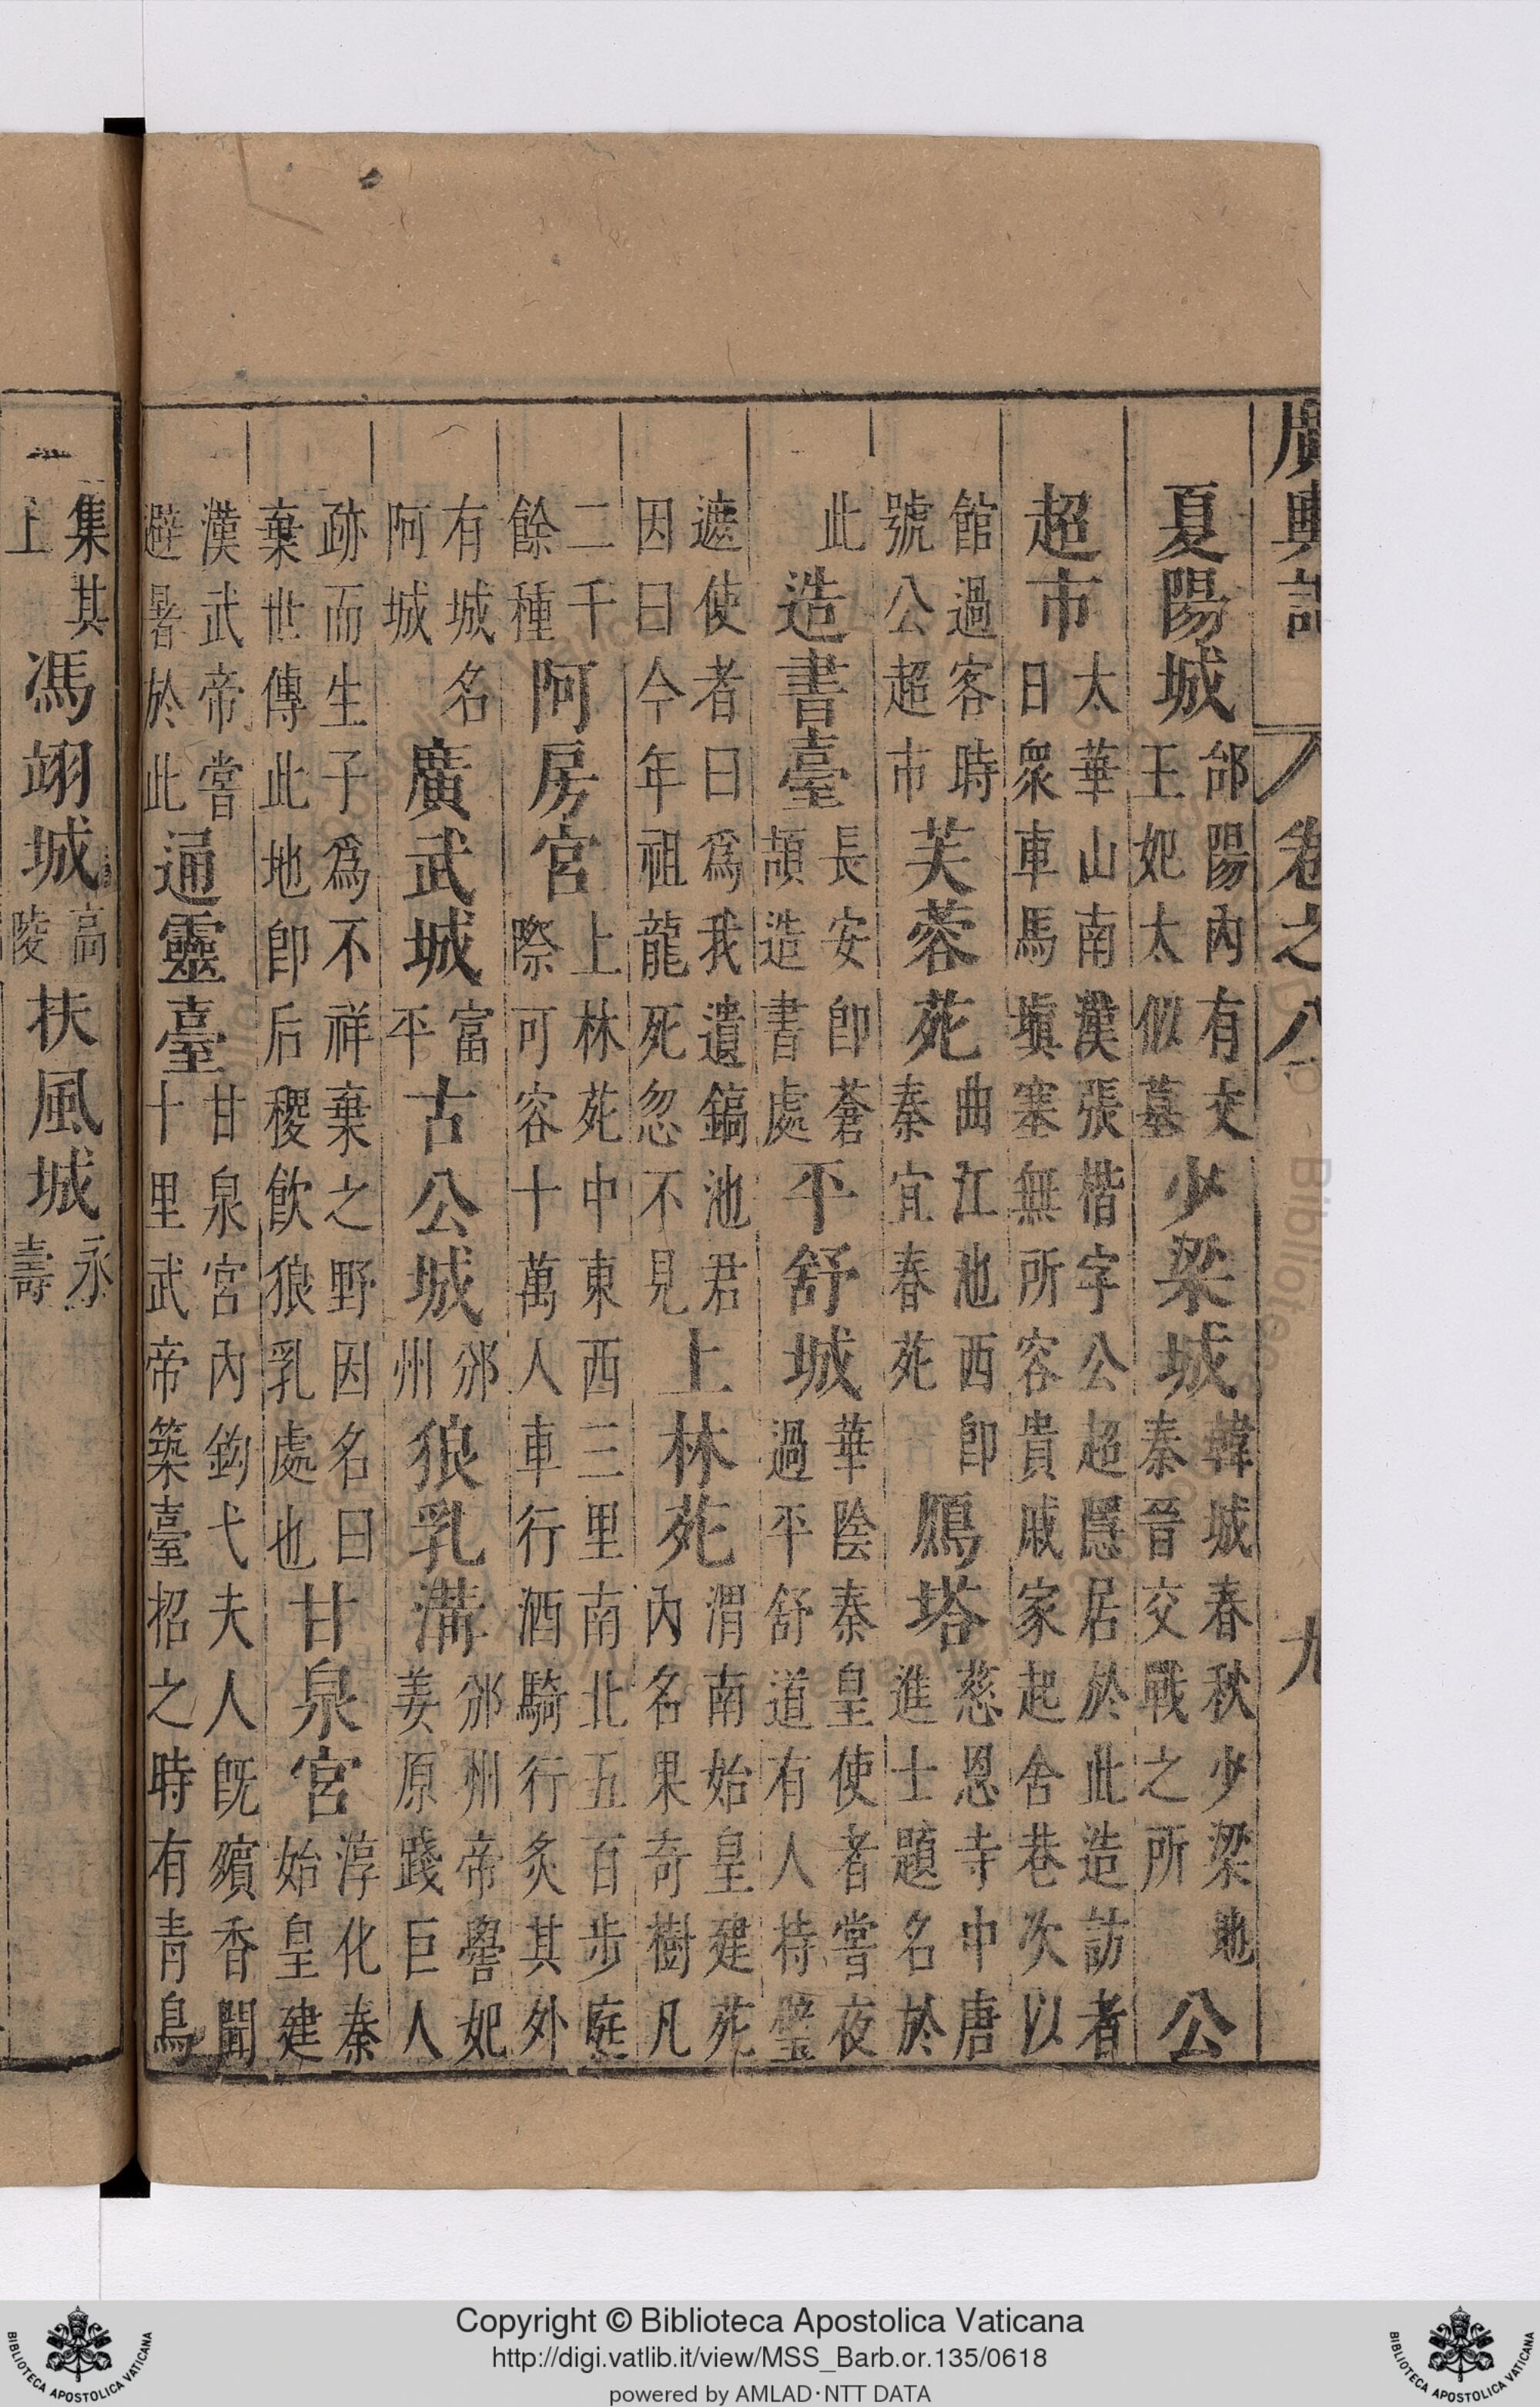 廣輿記 卷之八 九
夏陽城郃陽內有文王妃太姒墓少梁城韓城春秋少梁地秦晉交戰之所公
超市太華山南漢張楷字公超隱居於此造訪者日衆車馬塡塞無所容貴戚家起舍巷次以
館過客時號公超市芙蓉苑曲江池西卽秦宜春苑鴈塔慈恩寺中唐進士題名於
此造書臺長安卽蒼頡造書處平舒城華陰秦皇使者嘗夜過平舒道有人持璧
遮使者曰爲我遺鎬池君因曰今年祖龍死忽不見上林苑渭南始皇建苑內名果奇樹凡
二千餘種阿房宮上林苑中東西三里南北五百步庭際可容十萬人車行酒騎行炙其外
有城名阿城廣武城富平古公城邠州狼乳溝邠州帝嚳妃姜原踐巨人
跡而生子爲不祥棄之野因名曰棄世傳此地卽后稷飮狼乳處也甘泉宮淳化秦始皇建
漢武帝嘗避暑於此通靈臺甘泉宮內鈎弋夫人旣殯香聞十里武帝築臺招之時有青鳥
集其上馮翊城高陵扶風城永壽
Copyright © Biblioteca Apostolica Vaticana
http://digi.vatlib.it/view/MSS_Barb.or.135/0618
powered by AMLAD·NTT DATA
BIBLIOTECA APOSTOLICA VATICANA
BIBLIOTECA APOSTOLICA VATICANA